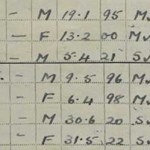 - M 19.1 95 M
- F 13.2 00 M
- M 5.4 21 S
- M 9.5 96 M
- F 6.4 98 M
- M 30.6 20 S
- F 31.5 22 S